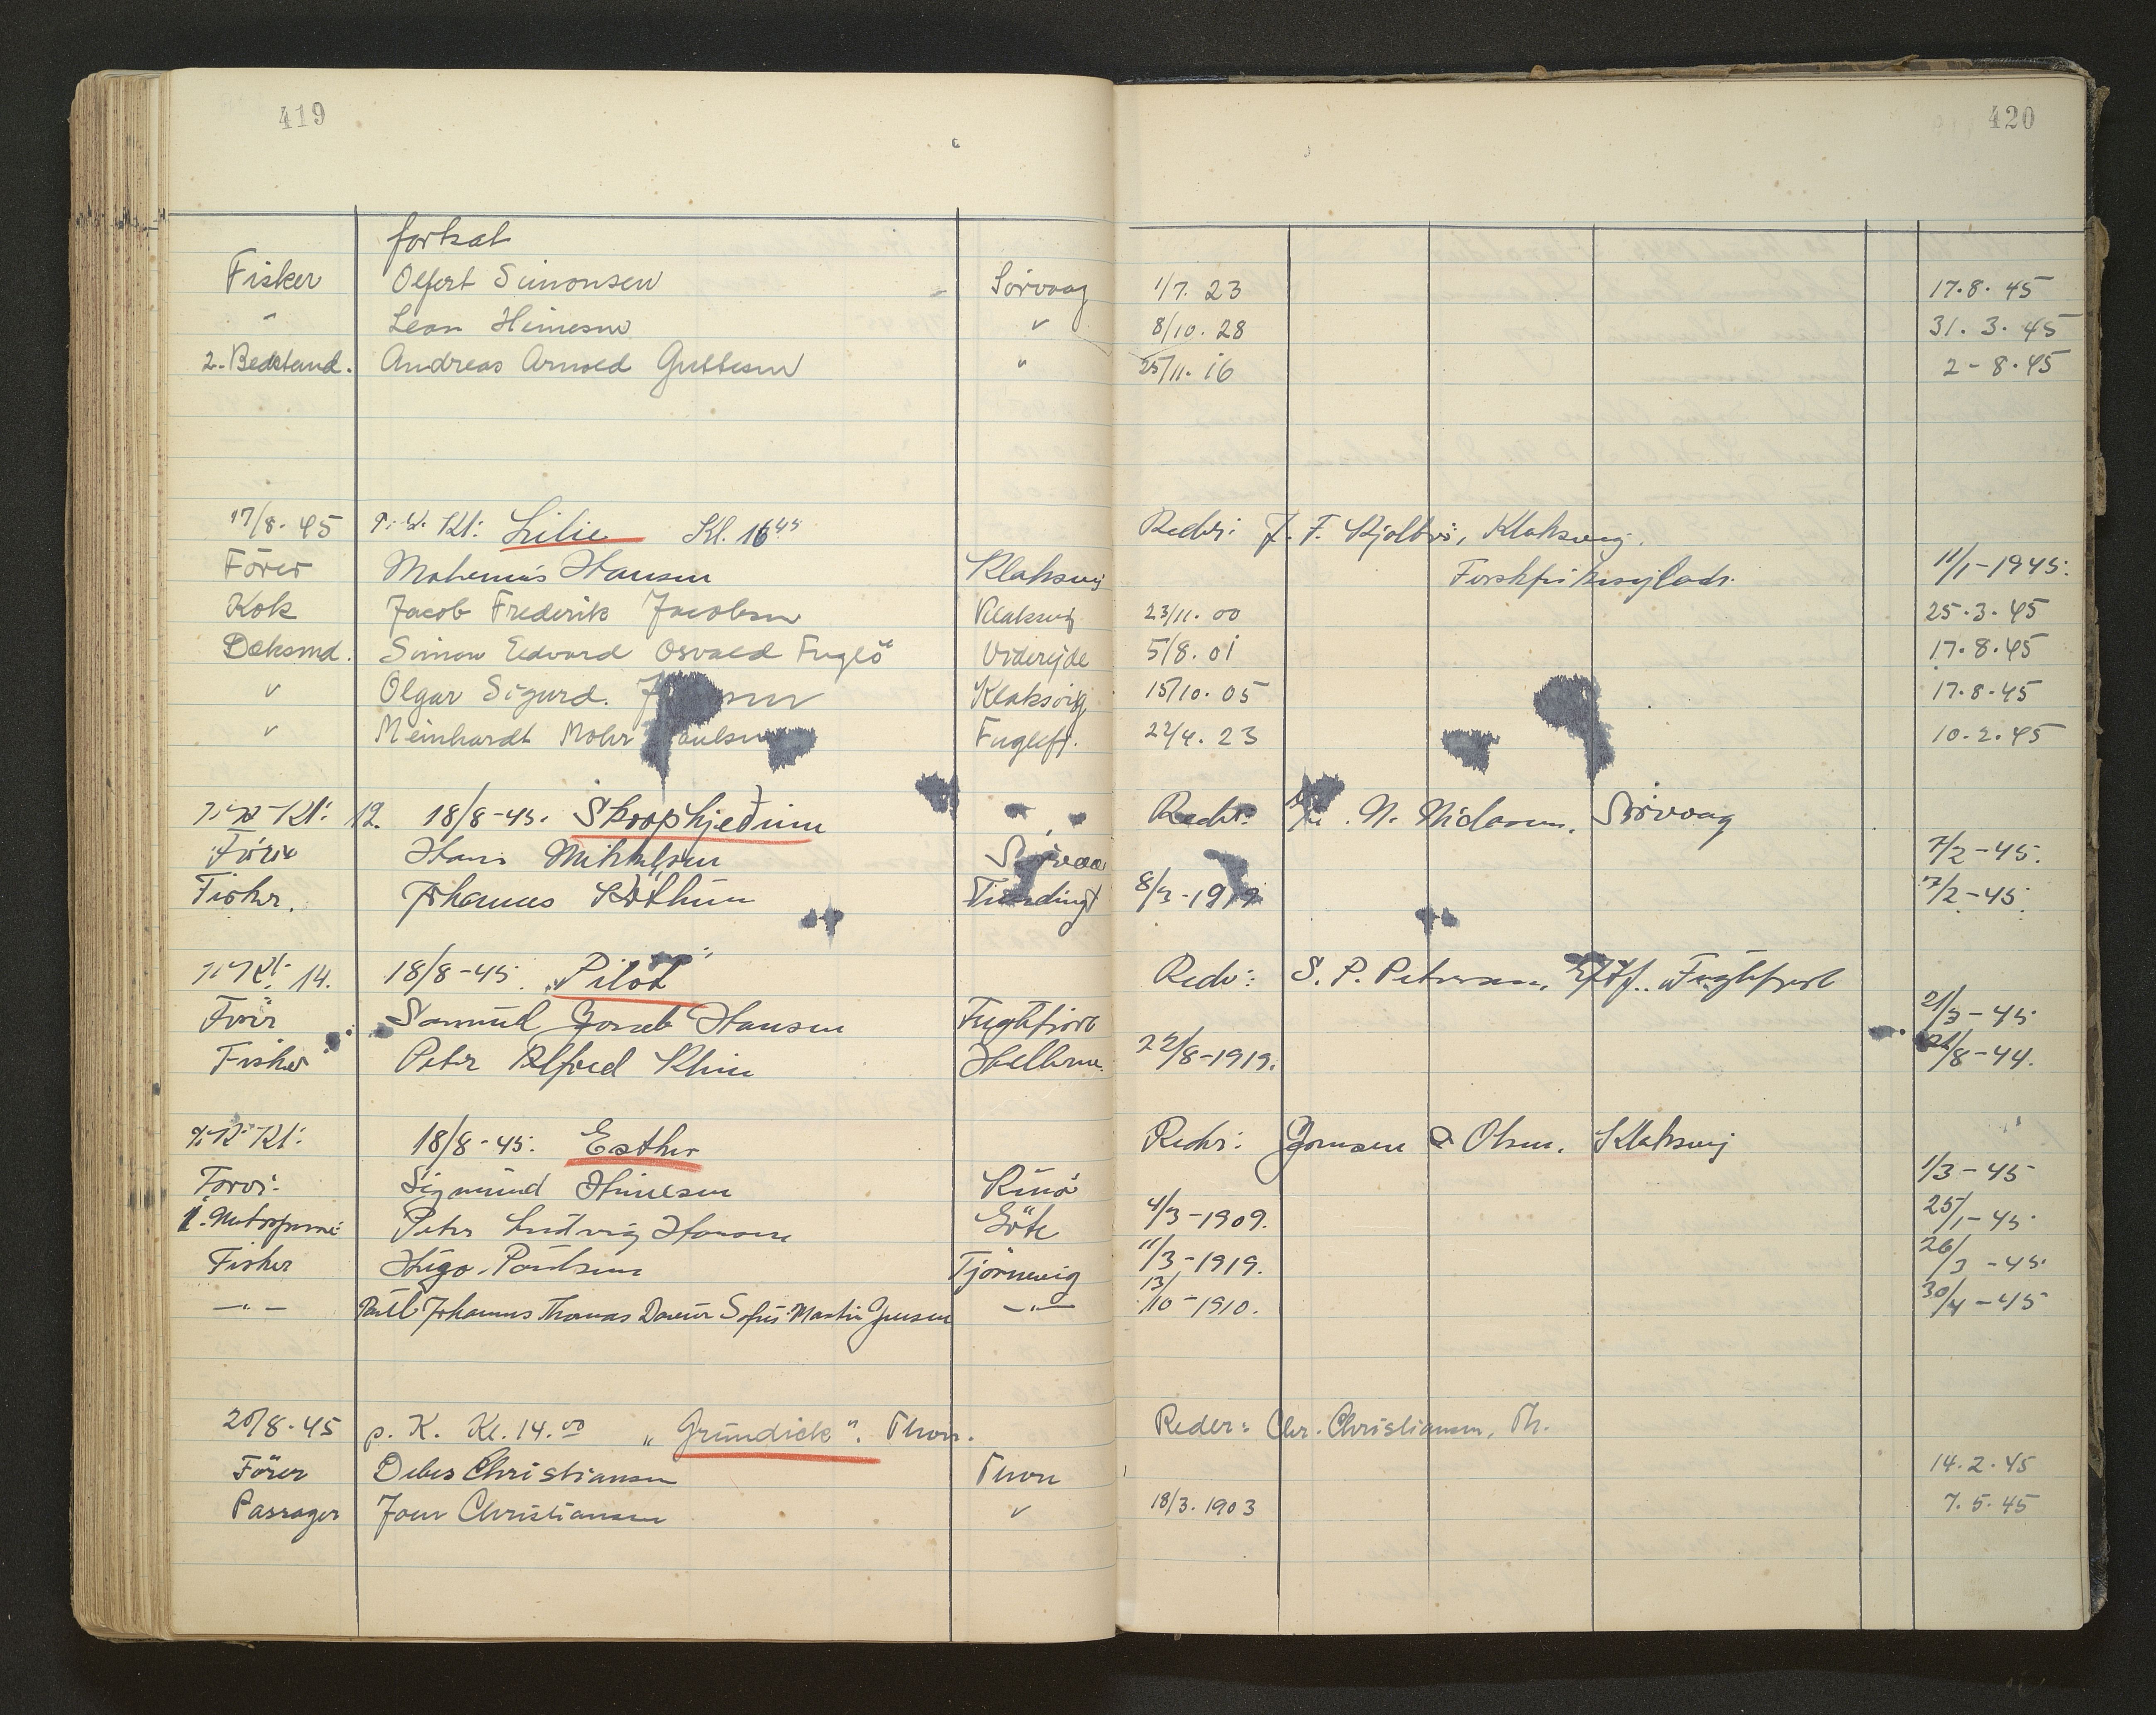 419
420
fortsat
Fisker Olfert Simonsen Sörvaag 1/7. 23 17.8.45
" Leon Hinesen " 8/10. 28 31.3.45
2. Bedstand. Andreas Arnold Guttesen " 25/11. 16 2-8.45
17/8-45 Kl: Lilie Kl. 16 45 Reder: J. F. Kjølbro, Klaksvig.
Förer Hansen Klaksvig 11/1-1945.
Kok Jacob Frederik Jacobsen Klaksvig 23/11. 00 25.3.45
Doksmd. Simon Edvard Osvald Fuglö Viderejde 5/8. 01 17.8.45
" Olgar Sigurd. Klaksvig 15/10. 05 17.8.45
" Meinhardt Mohr Poulsen Fuglefj. 22/4. 23 10.2.45
Kl: 12. 18/8-45. Skoophjedium Reder: N. Niclasen, Sörvaag
Förer Hans Mikkelsen Sörvaag 7/2-45.
Fisker. Johannes 8/3-1919 7/2-45.
Kl. 14. 18/8-45. "Pilot" Reder: S. P. Petersen, Eftf. Fuglefjord
Förer Samuel Jacob Hansen Fuglefjord 21/3-45
Fisker Peter Alfred Klein 22/8-1919. /8-44.
Kl: 18/8-45: Esther Reder: Joensen & Olsen, Klaksvig
Förer: Sigmund Hinesen Kunö 1/3-45
1. Motorpasser Peter Ludvig Hansen Göte 4/3-1909. 25/1-45
Fisker Hugo Poulsen Tjörnevig 11/3-1919. 26/3-45.
-"- Poul Johannes Thomas Sofus Martin Jensen -"- 13/10-1910. 30/4-45
20/8-45 p. K. Kl. 14.00 "Grundick". Thorn. Reder: Chr. Christiansen, Th.
Förer Debes Christiansen Thorn 14.2.45
Passager Joen Christiansen " 18/3. 1903 7.5.45